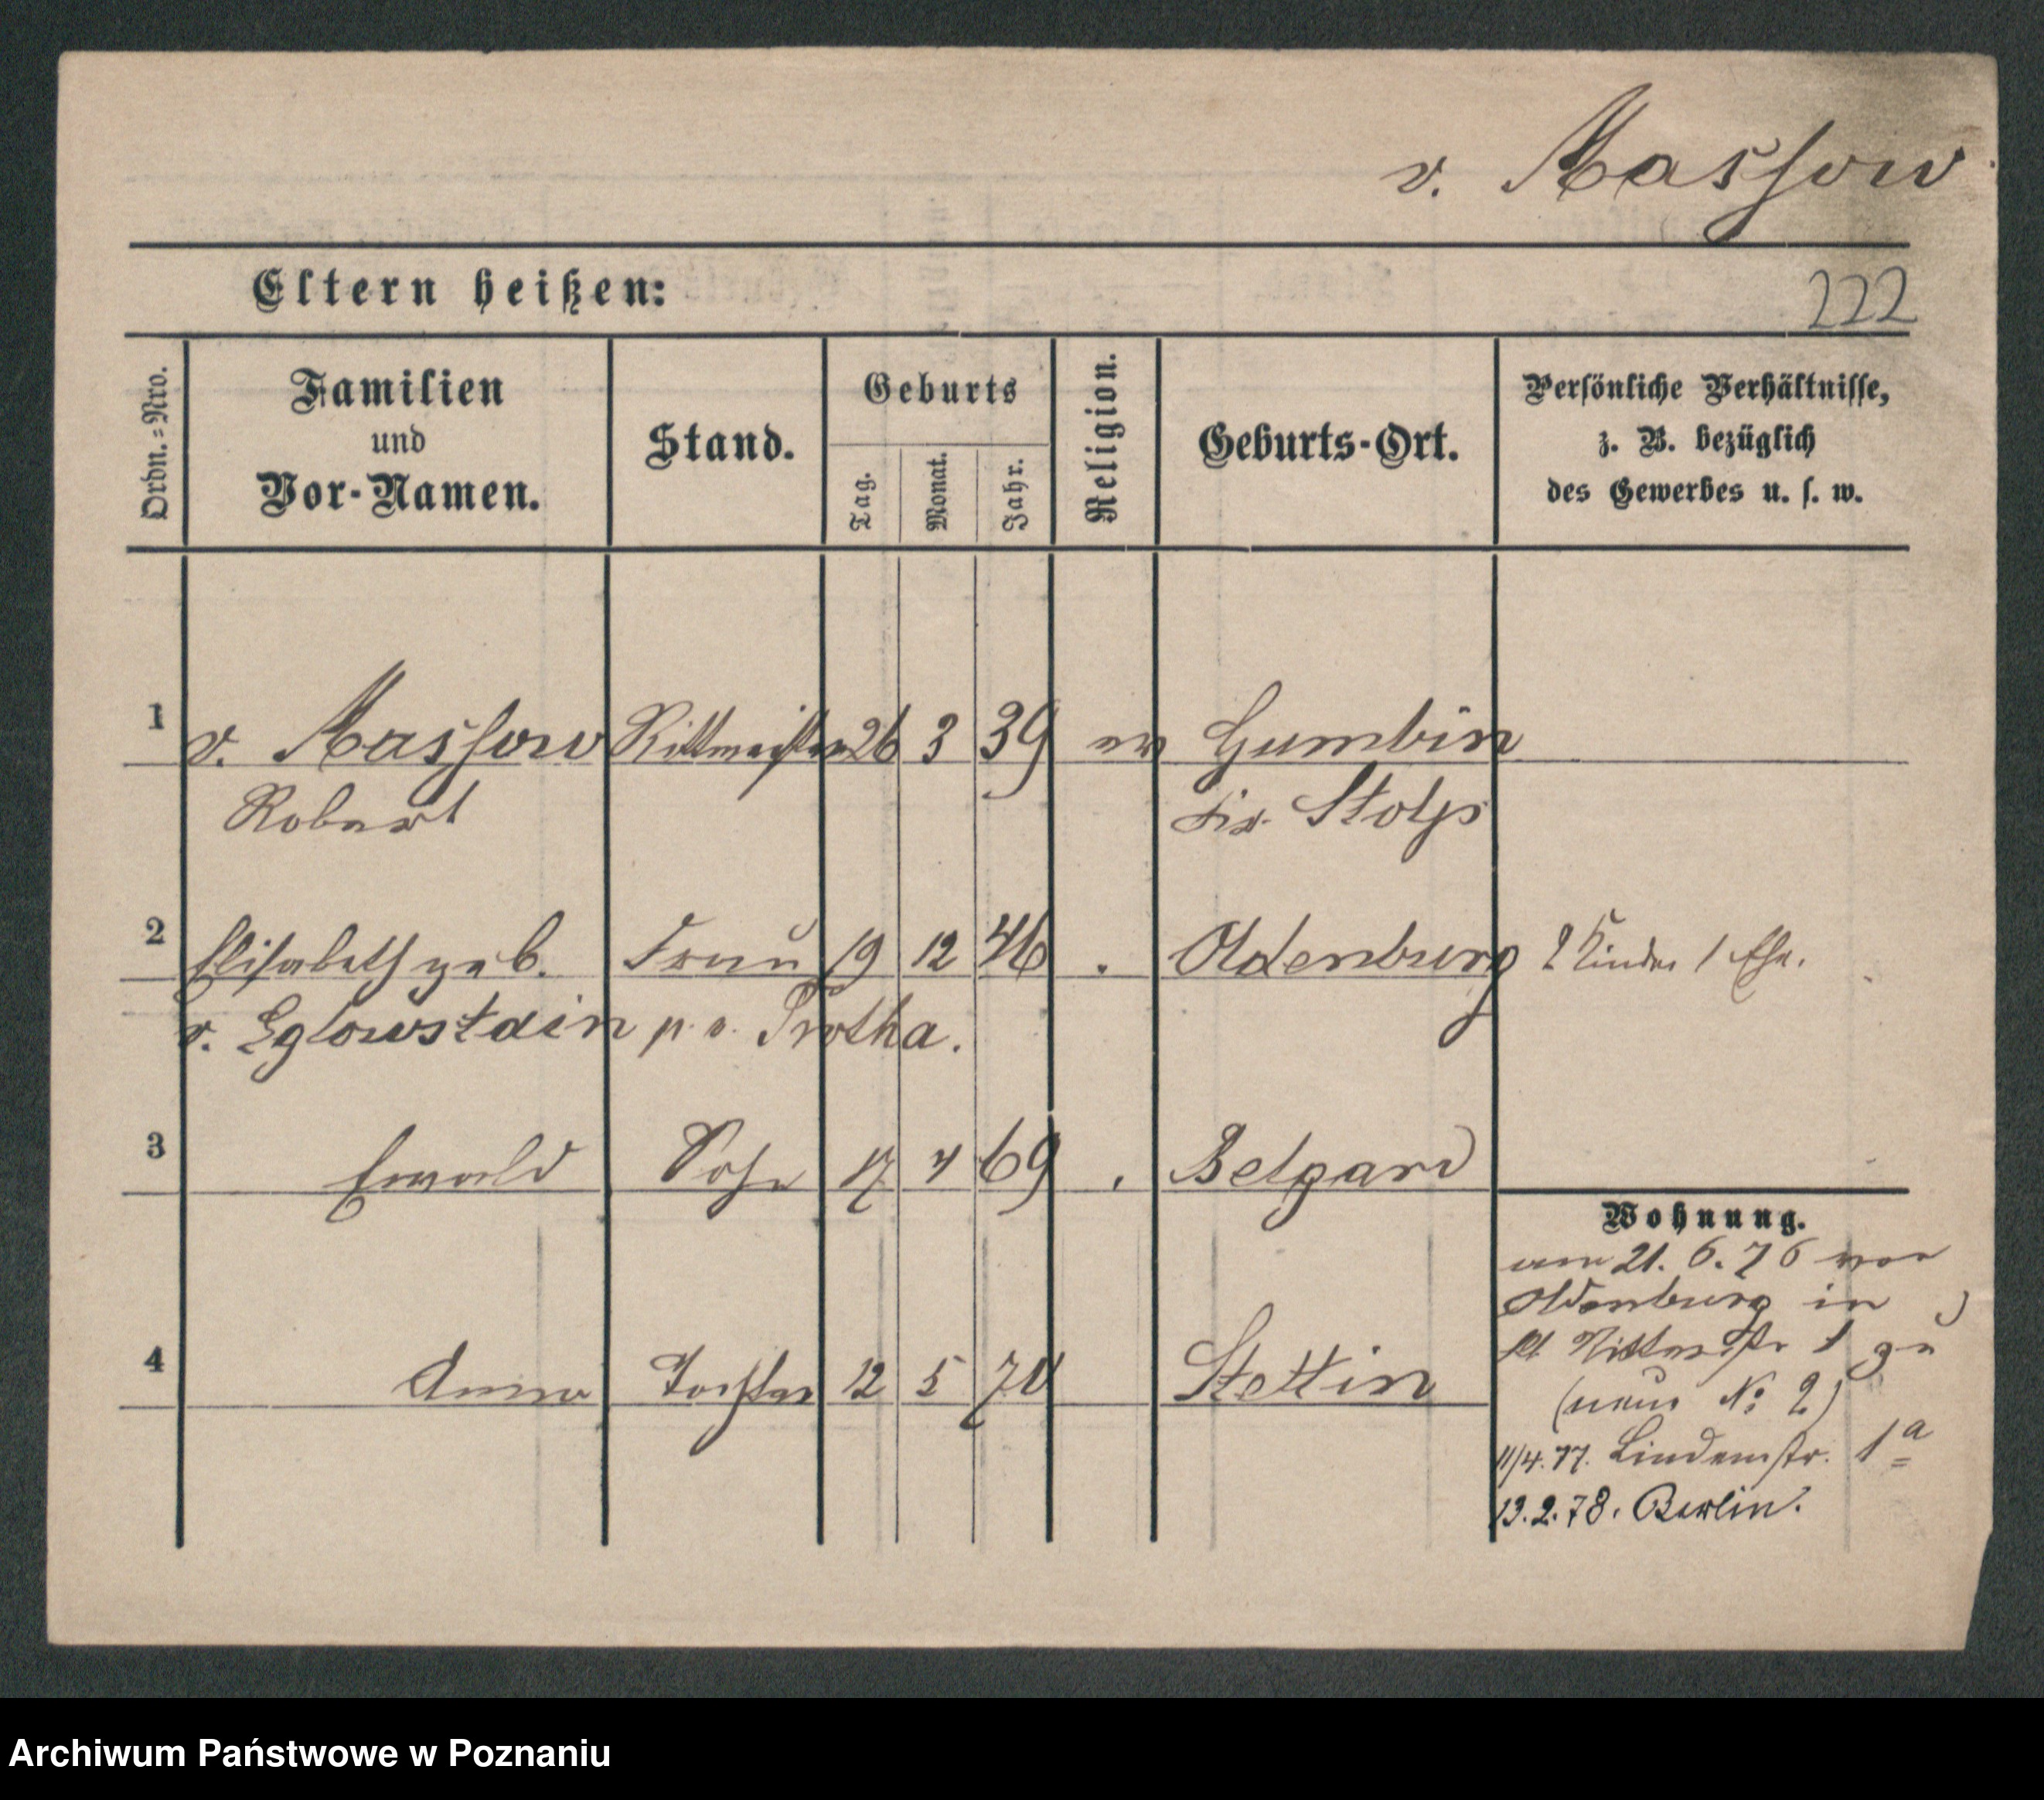 v. Massow.
Eltern heißen:
222
Ordn.=Nro.
Familien
und
Vor-Namen.
Stand.
Geburts
Tag.
Monat.
Jahr.
Religion.
Geburts-Ort.
Persönliche Verhältnisse,
z. B. bezüglich
des Gewerbes u. s. w.
1 v. Massow Rittmeister 26 3 39 ev Gumbin
Robert Kr. Stolp
2 Elisabeth geb. Frau 19 12 46 . Oldenburg 2 Kinder 1 Ehe.
v. Egloffstein p. v. Trotha.
3 Ewald Sohn 17 4 69 . Belgard
Wohnung.
am 21. 6. 76 von
Oldenburg in
4 Anna Tochter 12 5 70 Stettin
kl Ritterstr 1 zu
(neue No 2)
11/4. 77. Lindenstr. 1a
13. 2. 78. Berlin.
Archiwum Państwowe w Poznaniu